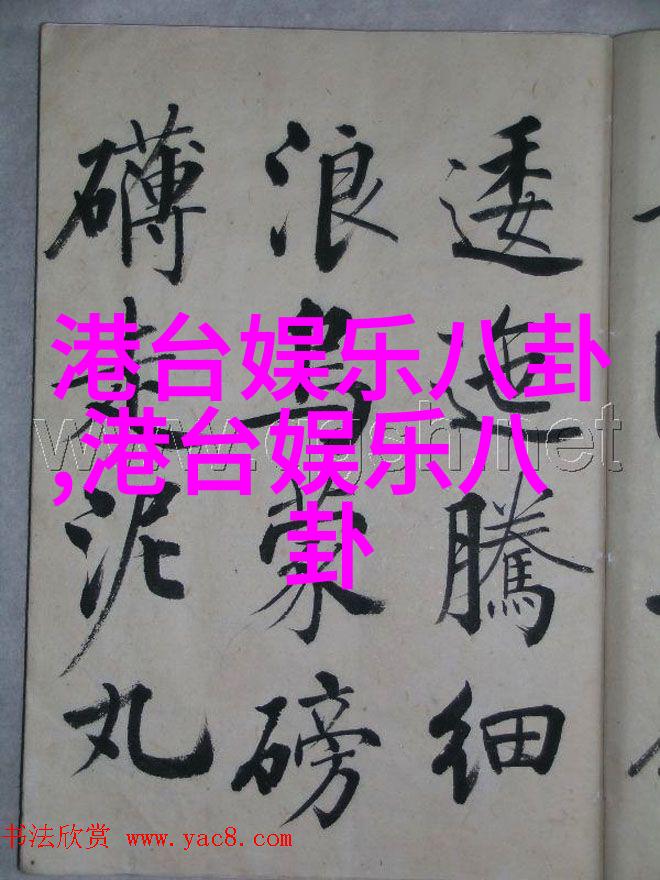 逶迤騰細
浪烏蒙磅
礴走泥丸
港台娱乐八卦
,港台娱乐八
卦
书法欣赏 www.yac8.com